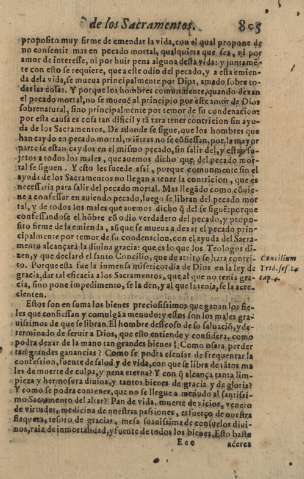 de los Sacramentos. 805
proposito muy firme de emendar la vida, con el qual propone de
no consentir mas en pecado mortal, qualquiera que sea, ni por
amor de interesse, ni por huir pena alguna desta vida: y juntamẽ-
te con esto se requiere, que aeste odio del pecado, y a esta emien-
da dela vida, se mueua principalmente por Dios, amado sobre to-
das las cosas. Y porque los hombres comunmente, quando dexan
el pecado mortal, no se mueuẽ al principio por este amor de Dios
sobrenatural, sino principalmente por temor de su condenacion:
por esta causa es cosa tan dificil y rã rara tener contricion sin ayu-
da de los Sacramentos. De adonde se sigue, que los hombres que
han caydo en pecado mortal, miẽtras no se cõfiessan, por la mayor
parte se estan caydos en el mismo pecado, sin salir del, y estã su-
jetos a todos los males, que auemos dicho que del pecado mor-
tal se siguen. Y esto les sucede assi, porque comunmente sin el
ayuda de los Sacramentos no llegan a tener la contricion, que es
necessaria para salir del pecado mortal. Mas llegãdo como cõuie-
ne a confessar en auiendo pecado, luego se libran del pecado mor
tal, y de todos los males que auemos dicho q̃ del se siguẽ: porque
confessandose el hõbre cõ odio verdadero del pecado, y propo-
sito firme de la emienda, aũque se mueua a dexar el pecado prin-
cipalmente por temor de su condenacion, con el ayuda del Sacra-
mento alcançarà la diuina gracia: que es lo que los Teologos di-
zen, y que declarò el santo Concilio, que de atrito se hara contri-
to. Porque esta fue la inmensa misericordia de Dios en la ley de
gracia, dar tal eficacia a los Sacramentos, que al que no tenia gra-
cia, sino pone impedimento, se la den, y al que la tenia, se la acre-
cienten.
Concilium
Trid. ses. 14
cap. 4.
Estos son en suma los bienes preciosissimos que ganan los fie-
les que confiessan y comulgã a menudo: y estos son los males gra-
uissimos de que se libran. El hombre desseoso de su salud, y de-
terminado de seruir a Dios, que esto entiende y considera, como
podra dexar de la mano tan grandes bienes? Como osara perder
tan grandes ganancias? Como se podra escusar de frequentar la
confession, fuente de salud y de vida, con que se libra de tãtos ma
les de muerte de culpa, y pena eterna? Y con q̃ alcança tanta lim-
pieza y hermosura diuina, y tantos bienes de gracia y de gloria?
Y como se podra contener, que no se llegue a menudo al santissi-
mo Sacramento del altar? Pan de vida, muerte de vicios, venero
de virtudes, medicina de nuestras passiones, esfuerço de nuestra
flaqueza, tesoro de gracias, mesa suauissima de consuelos diui-
nos, raiz de inmortalidad, y fuente de todos los bienes. Esto basta
Eee acerca